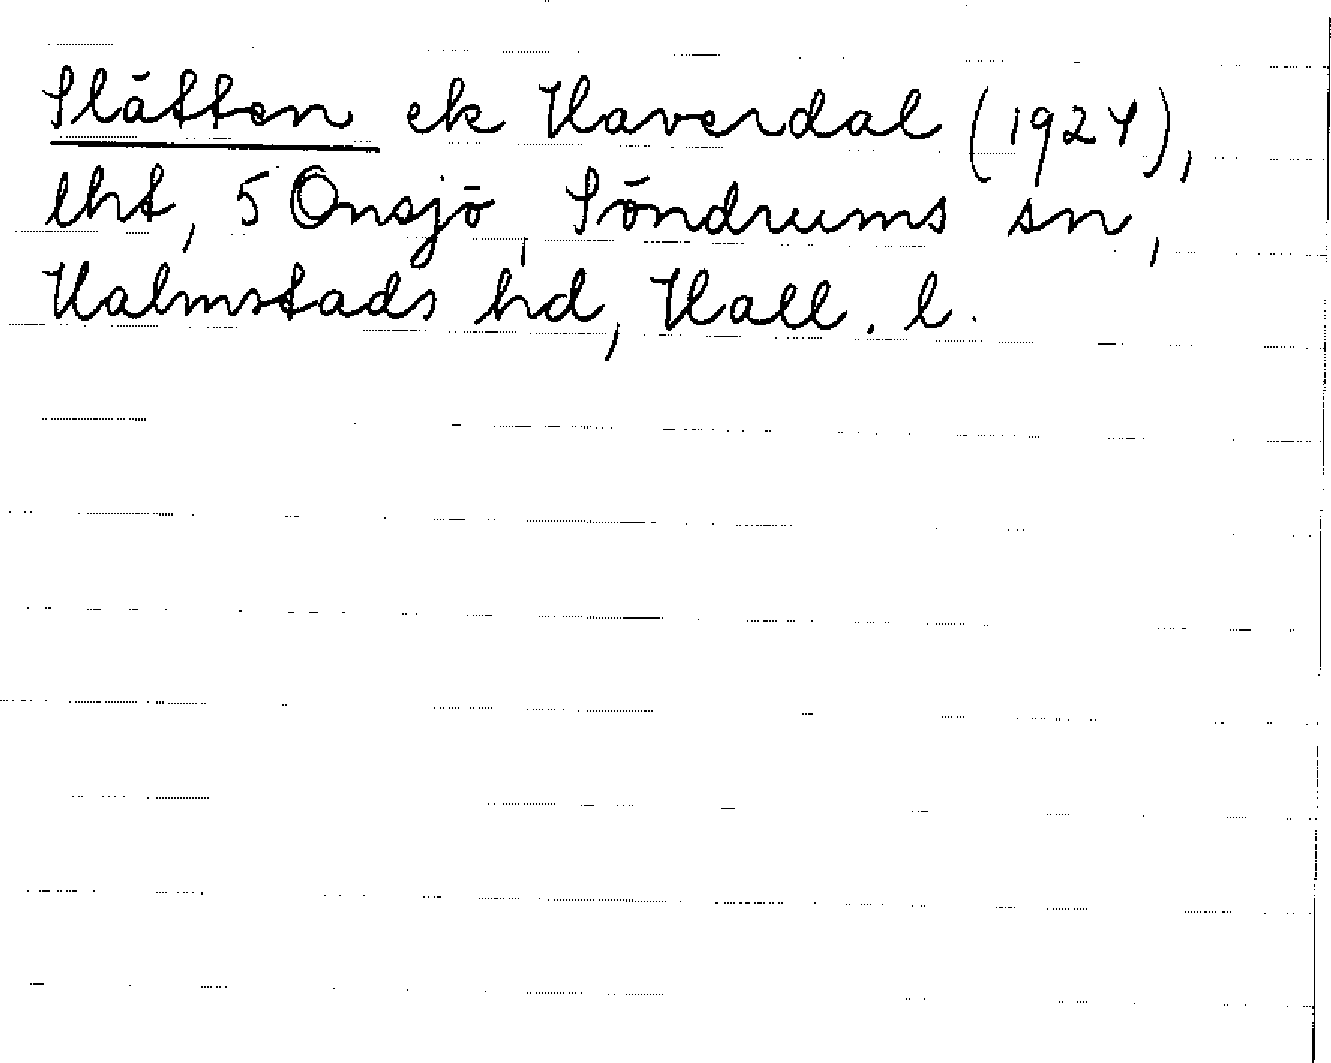 Slätten ek Haverdal (1924),
lht, 5 Onsjö, Söndrums sn,
Halmstads hd, Hall. l.